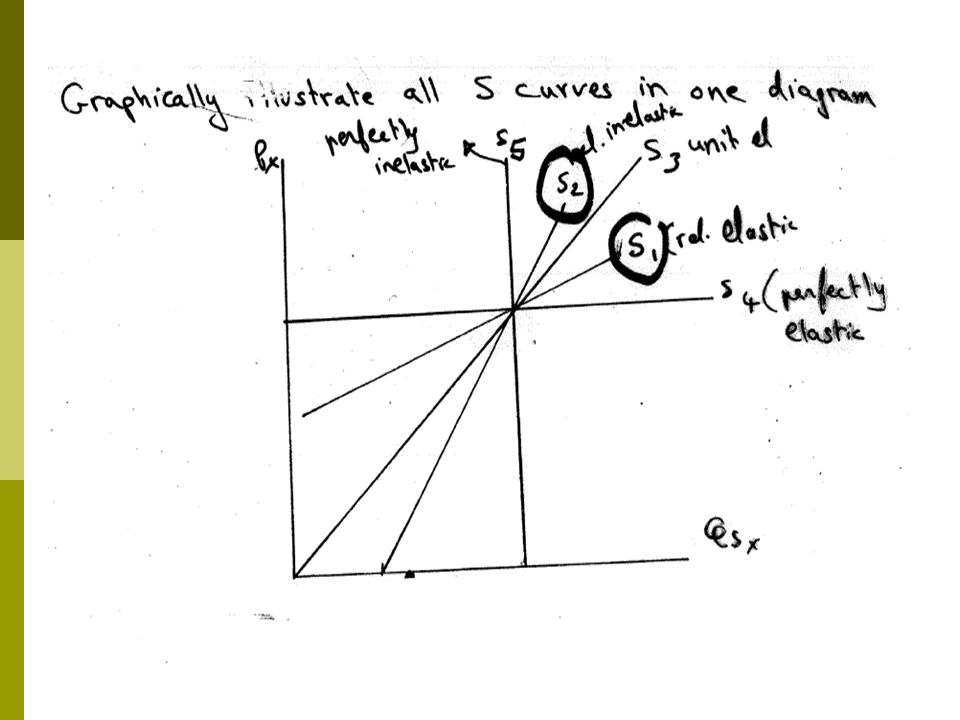 Graphically illustrate all S curves in one diagram
perfectly
inelastic
S5
rel. inelastic
S2
S3 unit el
Px
S1 (rel. elastic
S4 (perfectly
elastic
QSx